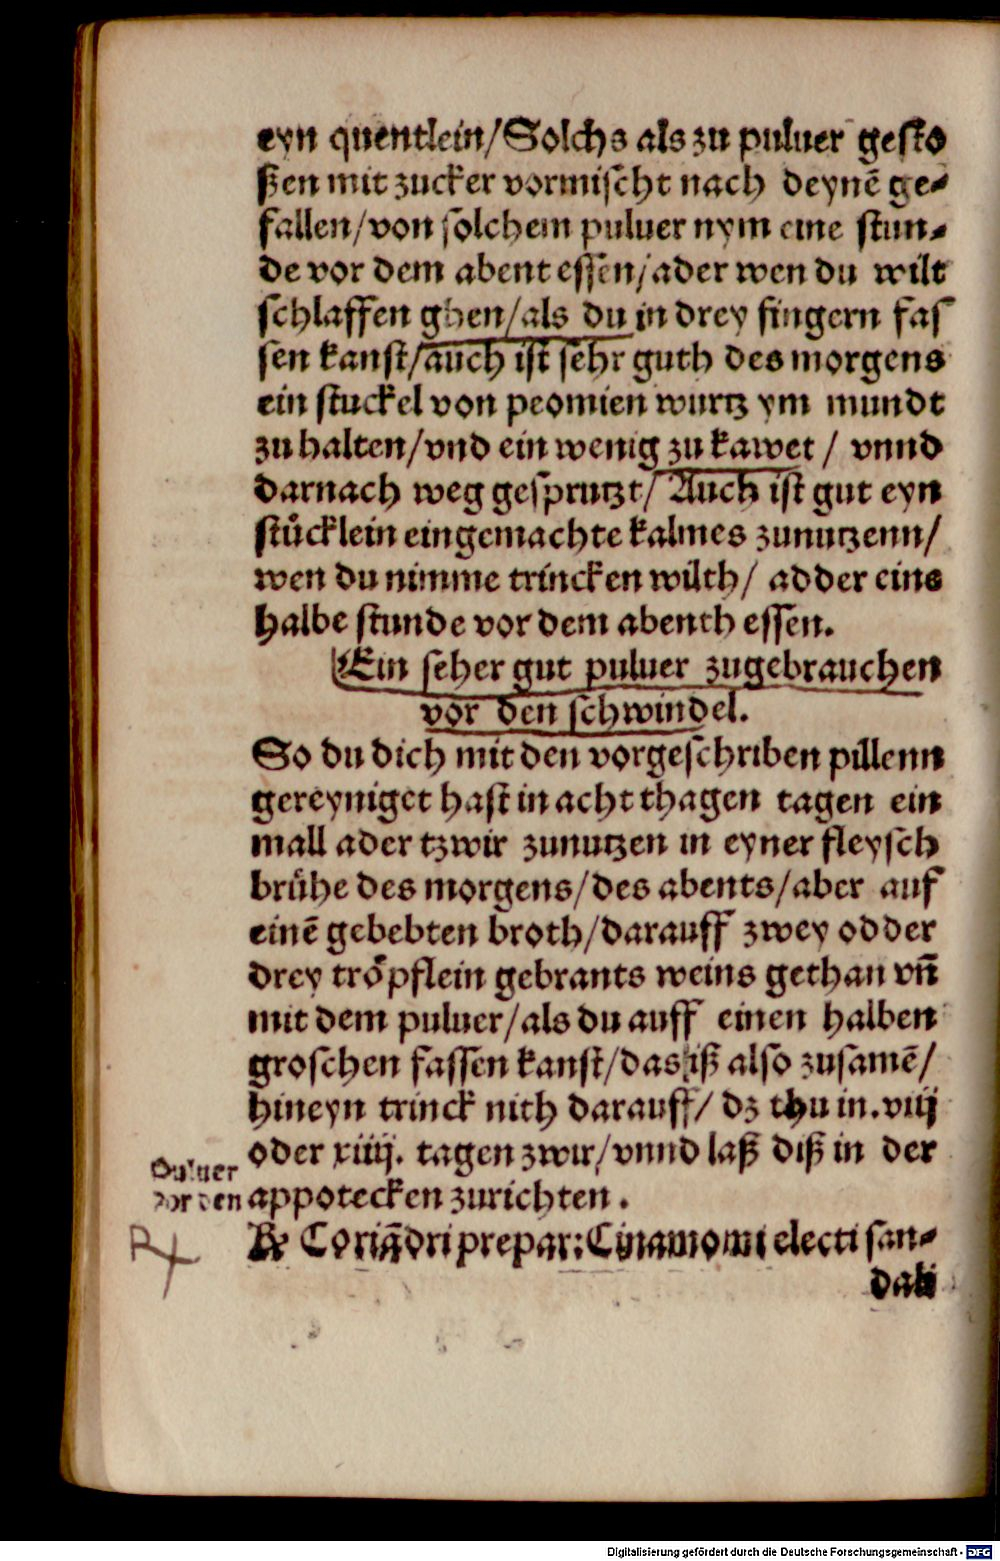 eyn quentlein/Solchs als zu puluer gesto
ßen mit zucker vormischt nach deynē ge⸗
fallen/von solchem puluer nym eine stun⸗
de vor dem abent essen/ader wen du wilt
schlaffen ghen/als du in drey fingern fas
sen kanst/auch ist sehr guth des morgens
ein stuckel von peomien wurtz ym mundt
zu halten/vnd ein wenig zu kawet / vnnd
darnach weg gesprutzt/ Auch ist gut eyn
stuͤcklein eingemachte kalmes zunutzenn/
wen du nimme trincken wilth/ adder eins
halbe stunde vor dem abenth essen.
Ein seher gut puluer zugebrauchen
vor den schwindel.
So du dich mit den vorgeschriben pillenn
gereyniget hast in acht thagen tagen ein
mall ader tzwir zunutzen in eyner fleysch
bruͤhe des morgens/des abents/aber auf
einē gebebten broth/darauff zwey odder
drey troͤpflein gebrants weins gethan vñ
mit dem puluer/als du auff einen halben
groschen fassen kanst/das iß also zusamē/
hineyn trinck nith darauff/ dz thu in.viij
oder xiiij. tagen zwir/vnnd laß diß in der
appotecken zurichten.
Puluer
vor den
℞ Coriādri prepar: Cynamomi electi san⸗
dali
Digitalisierung gefördert durch die Deutsche Forschungsgemeinschaft - DFG